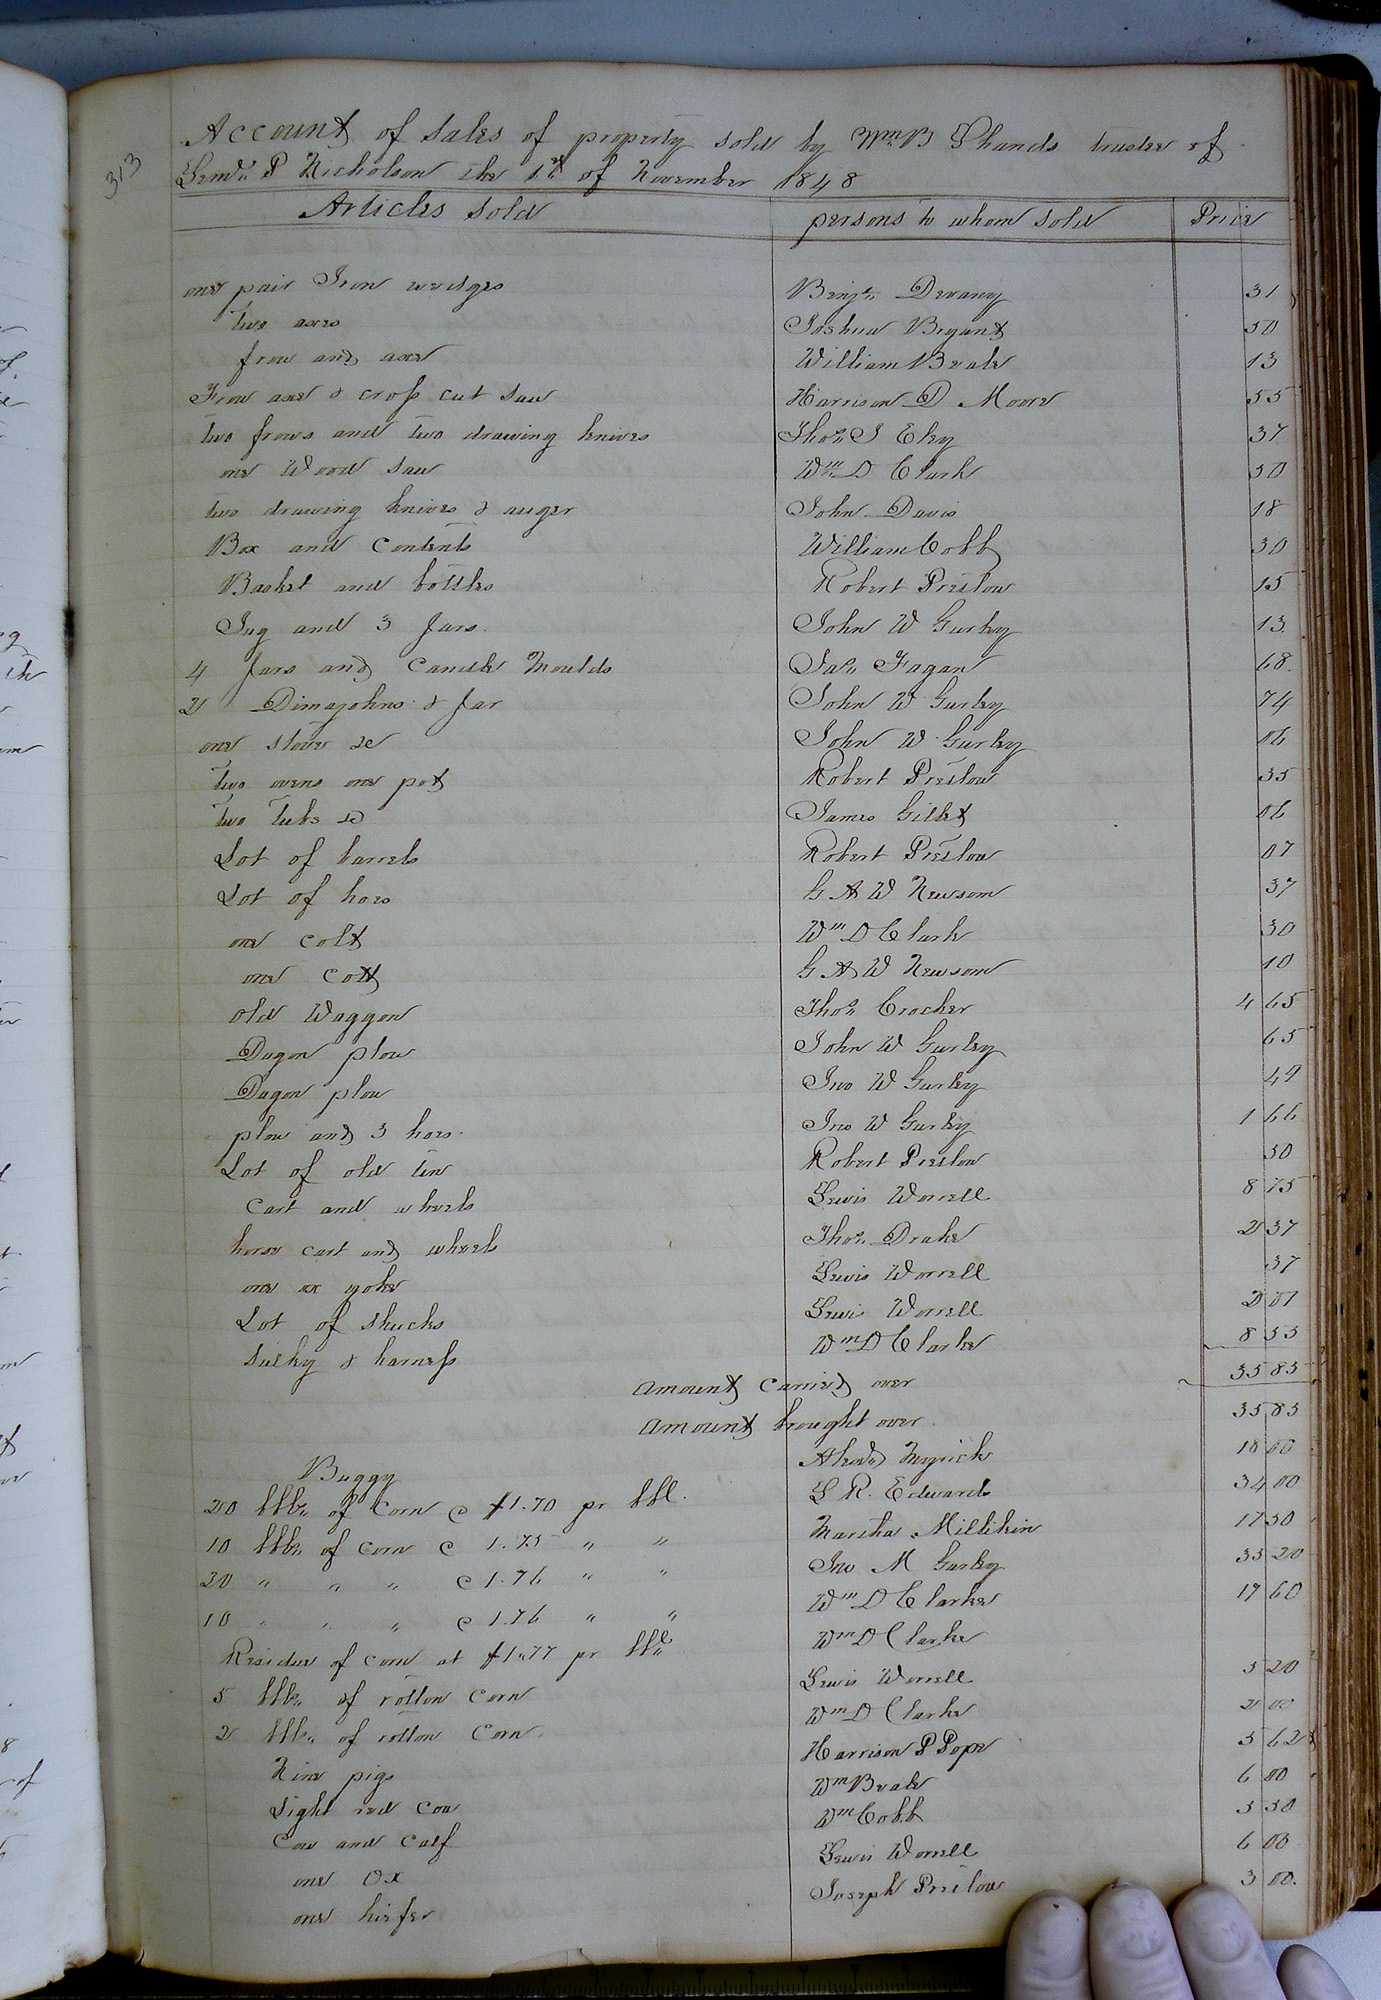 313
Account of Sales of property sold by Wm. B Shands trustee of
P Nicholson the 1st of November 1848
Articles Sold persons to whom sold Price
one pair Iron wedges Benjn. Devany 31
two axes Joshua Bryant 50
frow and axe William Beale 13
Frow axe & cross cut saw Harrison D Moore 55
two frows and two drawing knives Thos. J Eley 37
one Wood saw Wm D Clark 50
two drawing knives & auger John Davis 18
Box and Contents William Cobb 30
Basket and bottles Robert Preslow 15
Jug and 3 Jars. John W Gurley 13.
4 Jars and Candle Moulds Jas. Fagan 68.
2 Dimajohns & Jar John W Gurley 74
one stove &c John W Gurley 06
two ovens one pot Robert Preslow 35
two tubs &c James Gillet 06
Lot of barrels Robert Preslow 07
Lot of hoes G A W Newsom 37
one colt Wm D Clark 30
one Cott G A W Newsom 10
old Waggon Thos. Crocker 4 65
Dagon plow John W Gurley 65
Dagon plow Jno W Gurley 49
plow and 3 hoes. Jno W Gurley 1 66
Lot of old tin Robert Preslow 50
Cart and wheels Lewis Worrell 8 75
horse cart and wheels Thos. Drake 2 37
one ox yoke Lewis Worrell 37
Lot of shucks Lewis Worrell 2 01
Sulky & harness Wm D Clarke 8 55
amount carried over 35 85
amount brought over. 35 85
Buggy Myrick 18 00
20 bbls. of Corn @ $1.70 pr bbl. R. Edwards 34 00
10 bbls. of corn @ 1.75 " " Martha Millikin 17 50
20 " " " @ 1.76 " " Jno M Gurley 35 20
10 " " " @ 1.76 " " Wm D Clarke 17 60
Residue of corn at $1.77 pr bbl. Wm D Clarke
5 bbls. of rotton Corn Lewis Worrell 5 20
2 bbls. of rotton Corn. Wm D Clarke 2 00
Nine pigs Harrison P Pope 5 62½
Light red Cow Wm Beale 6 00
Cow and Calf Wm Cobb 5 50
one Ox Lewis Worrell 6 00
one hiefer Joseph Preslow 3 00.